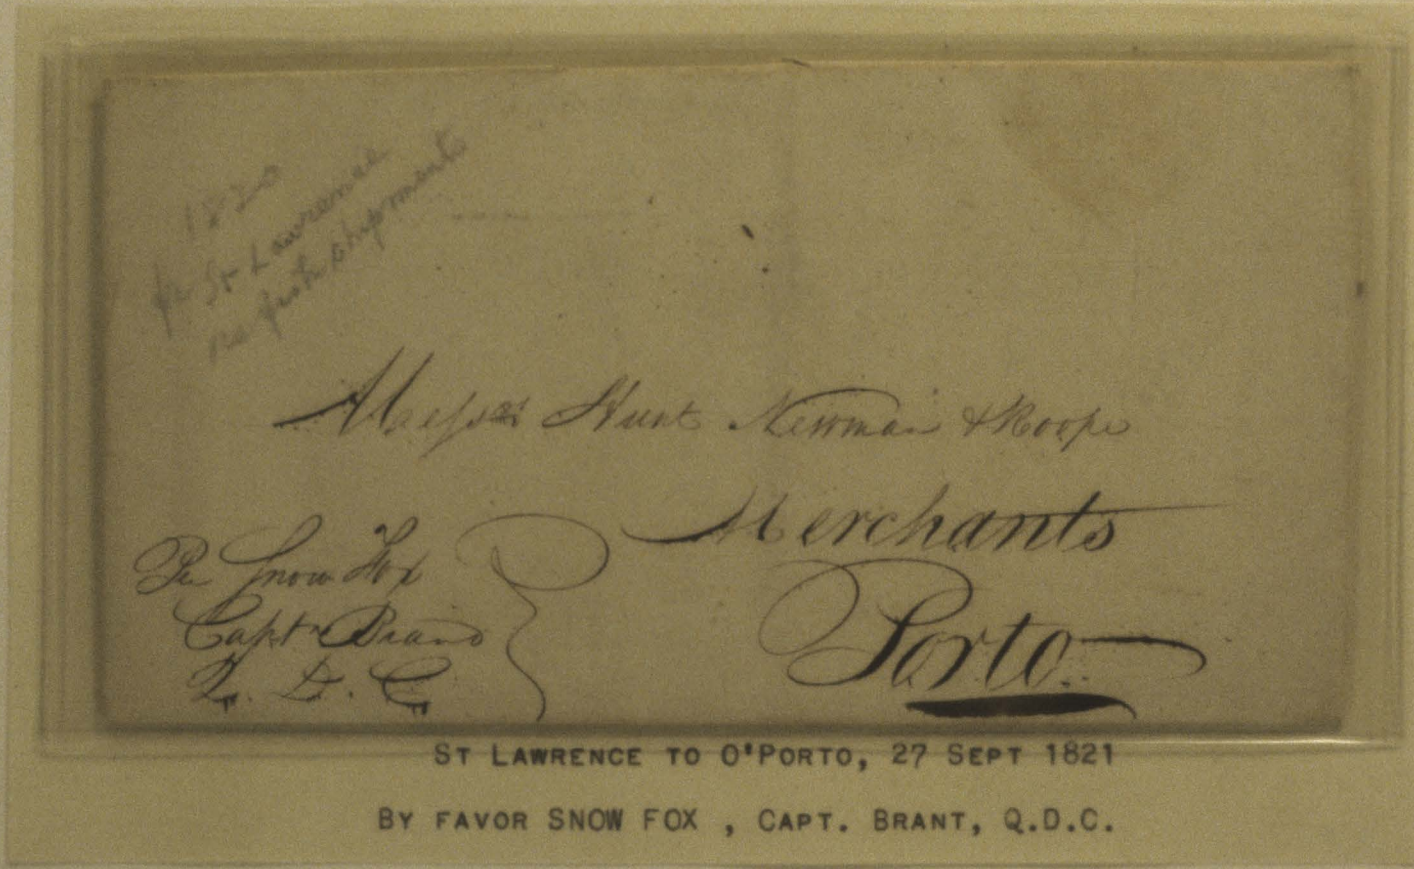 1820
pr St Lawrence
re fish shipments
Messrs Hunt Newman & Roope
Merchants
Porto
Per Snow Fox
Captn Brand
Q. D. C.
ST LAWRENCE TO O'PORTO, 27 SEPT 1821
BY FAVOR SNOW FOX , CAPT. BRANT, Q.D.C.